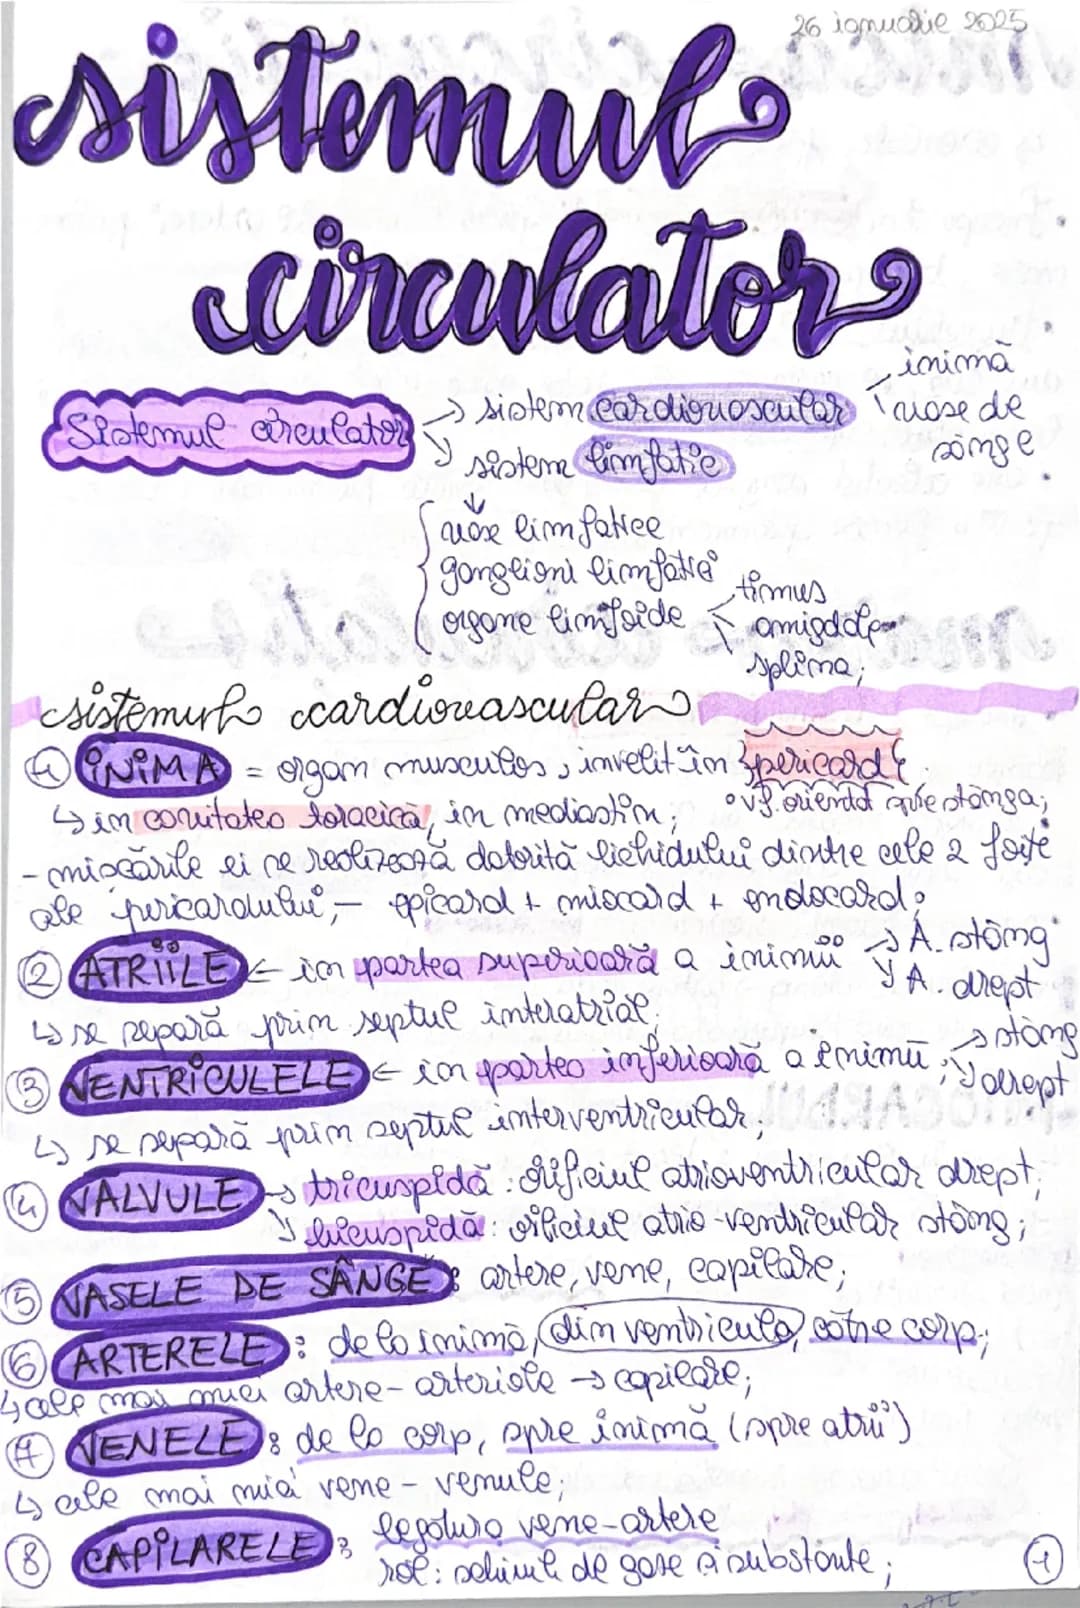 26 ianuarie 2025
sistemul
circulator
Sistemul circulator → sistem cardiovascular
inimă
vase de
sânge
sistem limfatic
vase limfatice
ganglioni limfatici
organe limfoide
timus
amigdale
splina;
sistemul cardiovascular
1 INIMA = organ musculos, învelit în pericard
↳ în cavitatea toracică, în mediastin; • vf. orientat spre stânga;
- mișcările ei se realizează datorită lichidului dintre cele 2 foițe
ale pericardului; - epicard + miocard + endocard;
2 ATRIILE ← în partea superioară a inimii → A. stâng
A. drept
↳ se separă prin septul interatrial;
3 VENTRICULELE ← în partea inferioară a inimii; → stâng
drept
↳ se separă prin septul interventricular;
4 VALVULE → tricuspidă: orificiul atrioventricular drept;
bicuspidă: orificiul atrio-ventricular stâng;
5 VASELE DE SÂNGE: artere, vene, capilare;
6 ARTERELE: de la inimă, (din ventricule) către corp;
↳ cele mai mici artere - arteriole → capilare;
7 VENELE: de la corp, spre inimă (spre atrii)
↳ cele mai mici vene - venule;
8 CAPILARELE: legătura vene-artere
rol: schimb de gaze și substanțe;
1